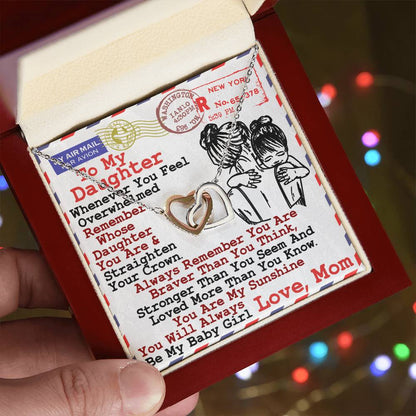 NEW YORK
WASHINGTON
JAN10
4:00PM
R
No.
378
5:29 P.M.
BY AIR MAIL
PAR AVION
To My
Daughter
Whenever You Feel
Overwhelmed
Remember
Whose
Daughter
You Are &
Straighten
Your Crown.
Always Remember You Are
Braver Than You Think,
Stronger Than You Seem And
Loved More Than You Know.
You Are My Sunshine
You Will Always Love, Mom
Be My Baby Girl